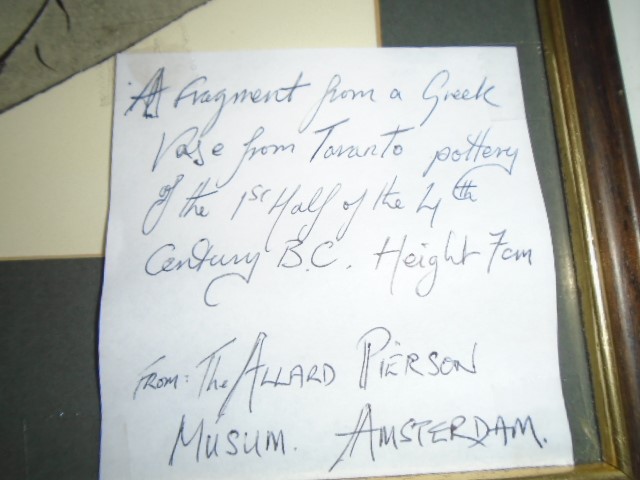 A Fragment from a Greek
Vase from Taranto pottery
of the 1st Half of the 4th
Century B.C. Height 7cm
FROM: The ALLARD PIERSON
MUSUM. AMSTERDAM.